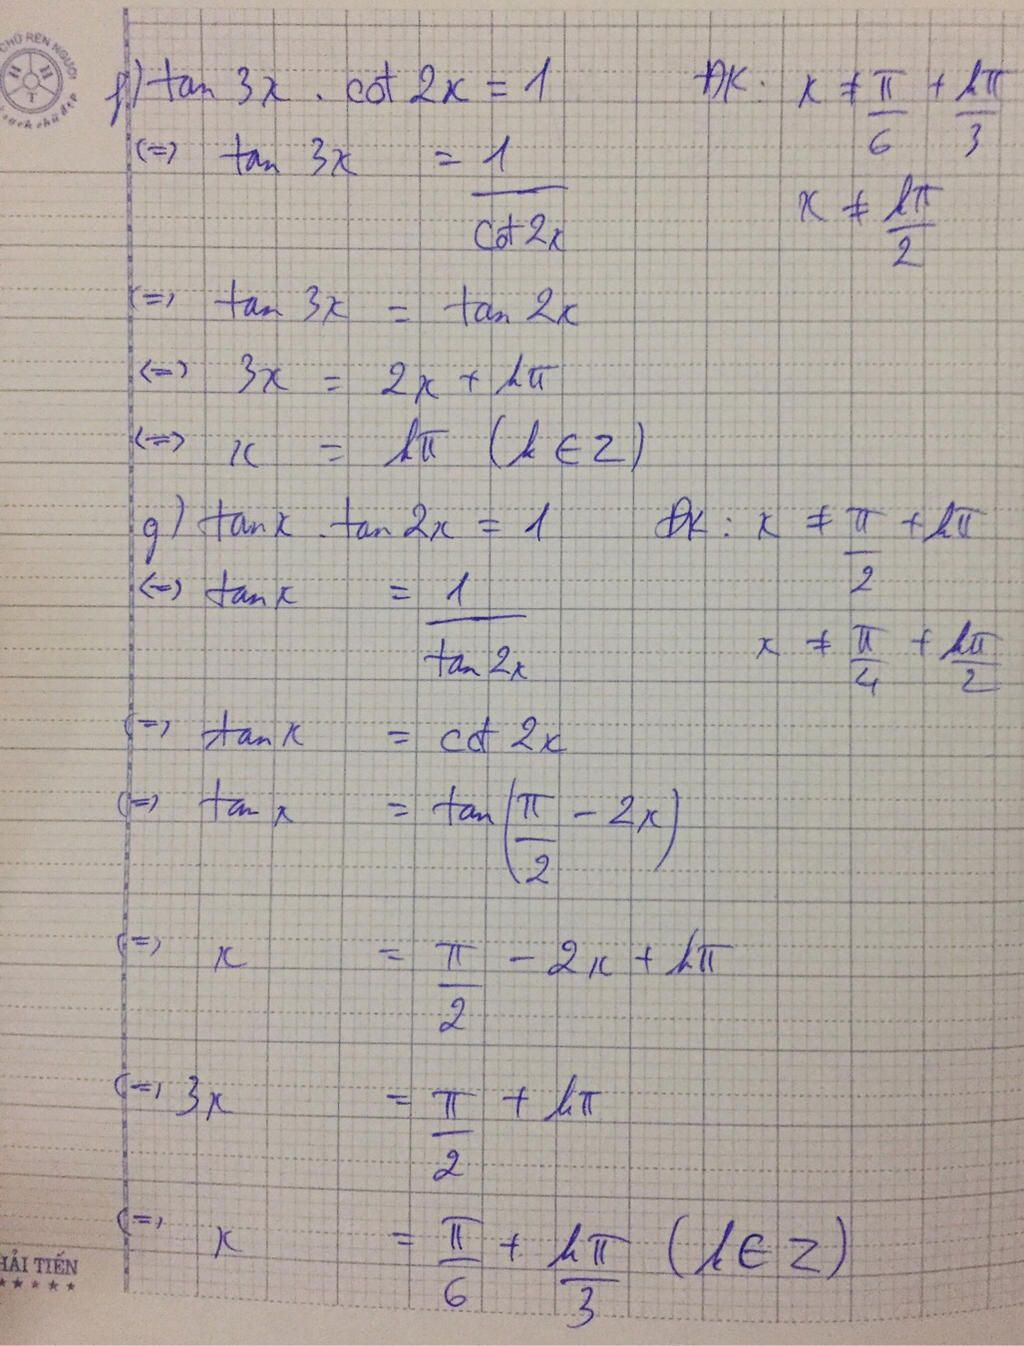 CHỮ RÈN NGƯỜI
f) tan 3x . cot 2x = 1 ĐK: x ≠ π/6 + kπ/3
(=) tan 3x = 1/cot 2x x ≠ kπ/2
(=) tan 3x = tan 2x
(=) 3x = 2x + kπ
(=) x = kπ (k ∈ Z)
g) tanx . tan 2x = 1 ĐK: x ≠ π/2 + kπ
(=) tanx = 1/tan 2x x ≠ π/4 + kπ/2
(=) tanx = cot 2x
(=) tan x = tan(π/2 - 2x)
(=) x = π/2 - 2x + kπ
(=) 3x = π/2 + kπ
(=) x = π/6 + kπ/3 (k ∈ Z)
HẢI TIẾN